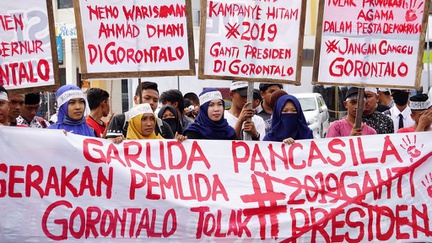 MEN
GUBERNUR
GORONTALO
NENO WARISMAN
AHMAD DHANI
DI GORONTALO
KAMPANYE HITAM
#2019
GANTI PRESIDEN
DI GORONTALO
TOLAK PROVOKASI
AGAMA
DALAM PESTA DEMOKRASI
#JANGAN GANGGU
GORONTALO
GARUDA PANCASILA
GERAKAN PEMUDA #2019GANTI
GORONTALO TOLAK PRESIDEN